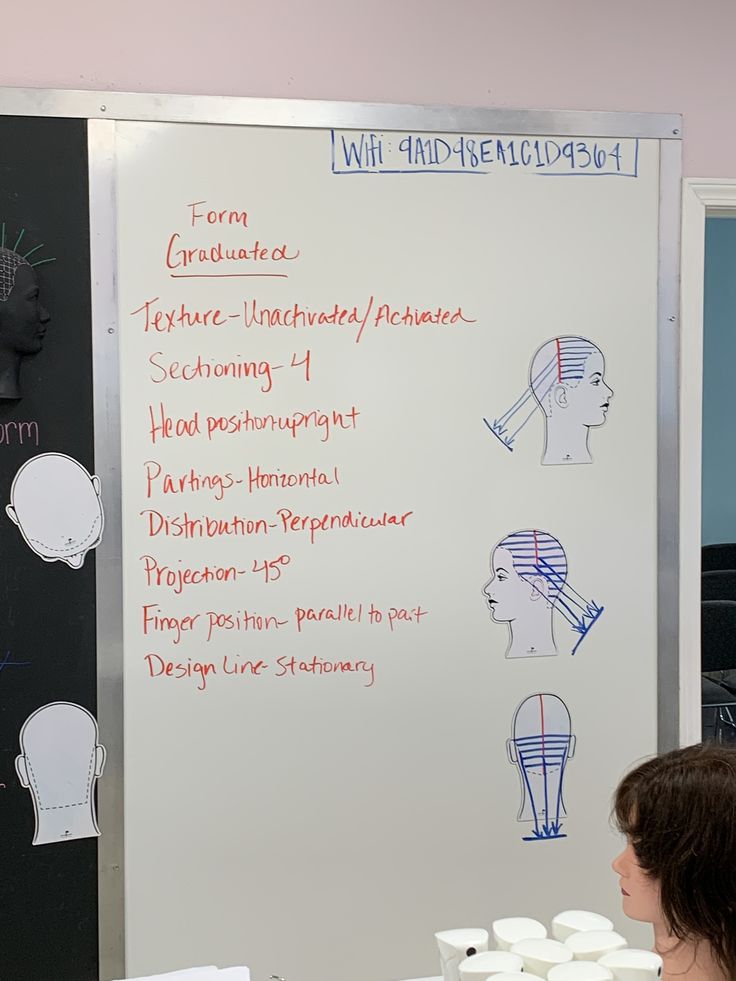 Wifi: 9A1D98EA1C1D9364
Form
Graduated
Texture-Unactivated/Activated
Sectioning-4
Head position-upright
Partings-Horizontal
Distribution-Perpendicular
Projection-45°
Finger position-parallel to part
Design Line-Stationary
orm